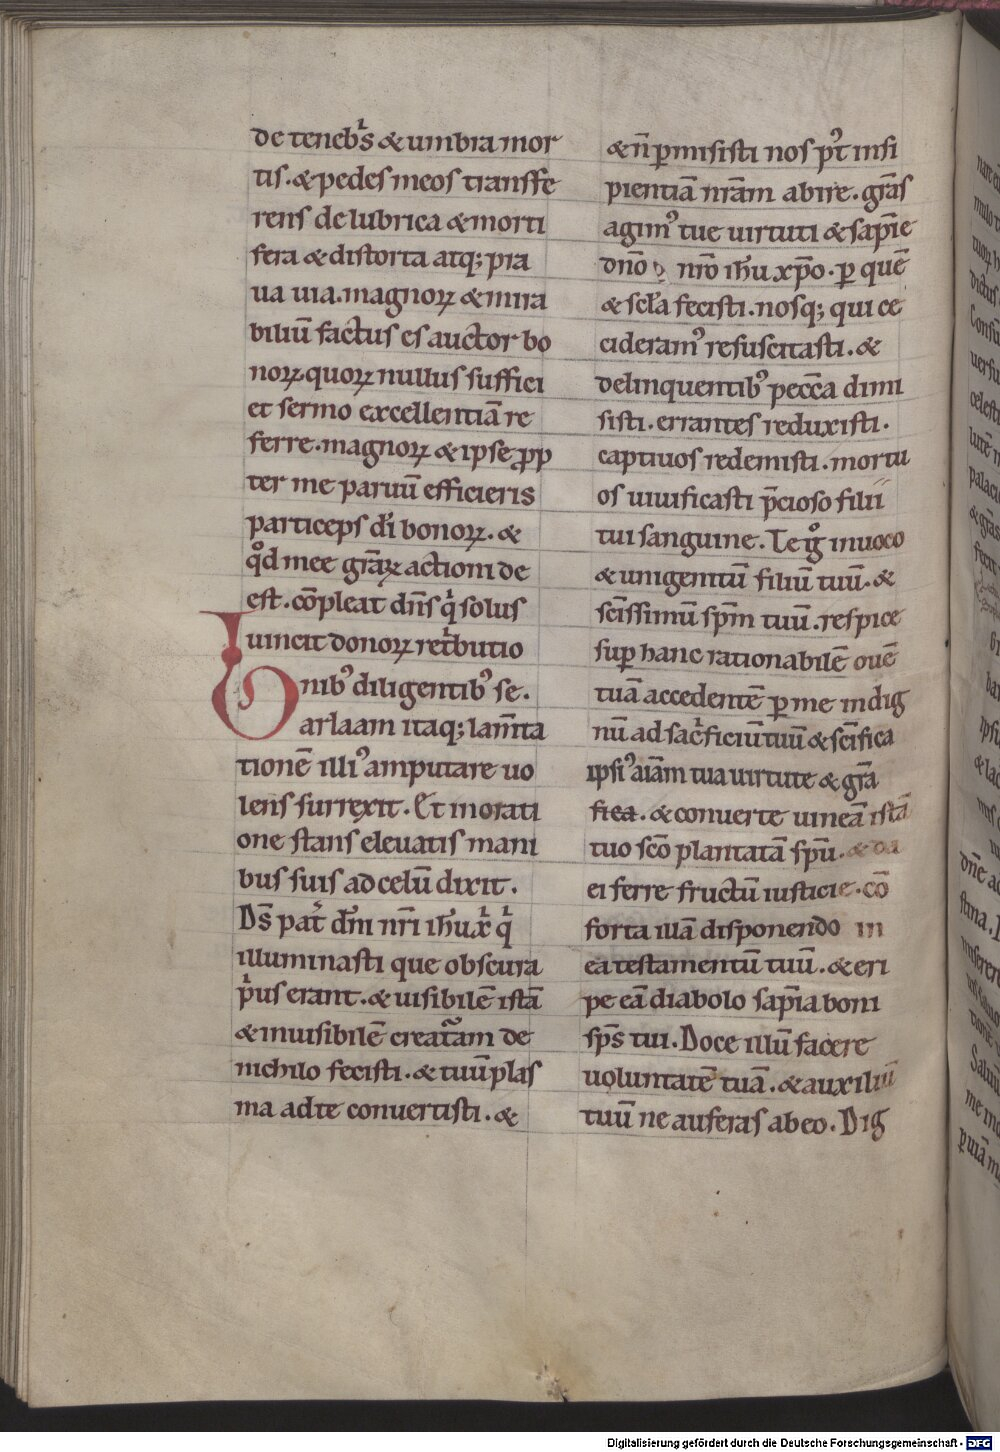 de tenebꝛ̉s & umbra mor
tis. & pedes meos transfe
rens de lubrica & morti
fera & distorta atq; pra
ua uia. magnoꝝ & mira
biliū factus es auctor bo
noꝝ. quoꝝ nullus suffici
et sermo excellentiā re
ferre. magnoꝝ & ipse ꝓp
ter me paruū efficieris
particeps dī bonoꝝ. &
qd̊ mee grāꝝ actioni de
est. cōpleat dn̄s qⁱ solus
uincit donoꝝ retⁱbutio
nibꝰ diligentibꝰ se.
Barlaam itaq; lam̄ta
tionē illiꝰ amputare uo
lens surrexit. Et in orati
one stans eleuatis mani
bus suis ad celū dixit.
Ds̄ pat̄ dn̄i nr̄i ih̄u xⁱ qⁱ
illuminasti que obscura
pⁱus erant. & uisibilē istā
& inuisibilē creatᵃam de
nichilo fecisti. & tuū plas
ma ad te conuertisti. &
& n̄ ꝑmisisti nos ꝓpt̓ insi
pientiā nr̄am abire. grās
agimꝰ tue uirtuti & sapīe
dn̄o nr̄o ih̄u xp̄o. ꝑ quē
& scl̄a fecisti. nosq; qui ce
cideramꝰ resuscitasti. &
delinquentibꝰ pecc̄a dimi
sisti. errantes reduxisti.
captiuos redemisti. mortu
os uiuificasti p̄cioso filii
tui sanguine. Te ig̊ inuoco
& unigenitū filiū tuū. &
sc̄issimū sp̄m tuū. respice
suꝑ hanc rationabilē ouē
tuā accedentē ꝑ me indig
nū ad sacⁱficiū tuū & sc̄ifica
ipsiꝰ aīam tua uirtute & grā
fica. & conuerte uineā istā
tuo sc̄o plantatā sp̄u. & da
ei ferre fructū iusticie. cō
forta illā disponendo in
ea testamentū tuū. & eri
pe eā diabolo sapīa boni
sp̄s tui. Doce illū facere
uoluntatē tuā. & auxiliū
tuū ne auferas ab eo. Dig
Digitalisierung gefördert durch die Deutsche Forschungsgemeinschaft - DFG